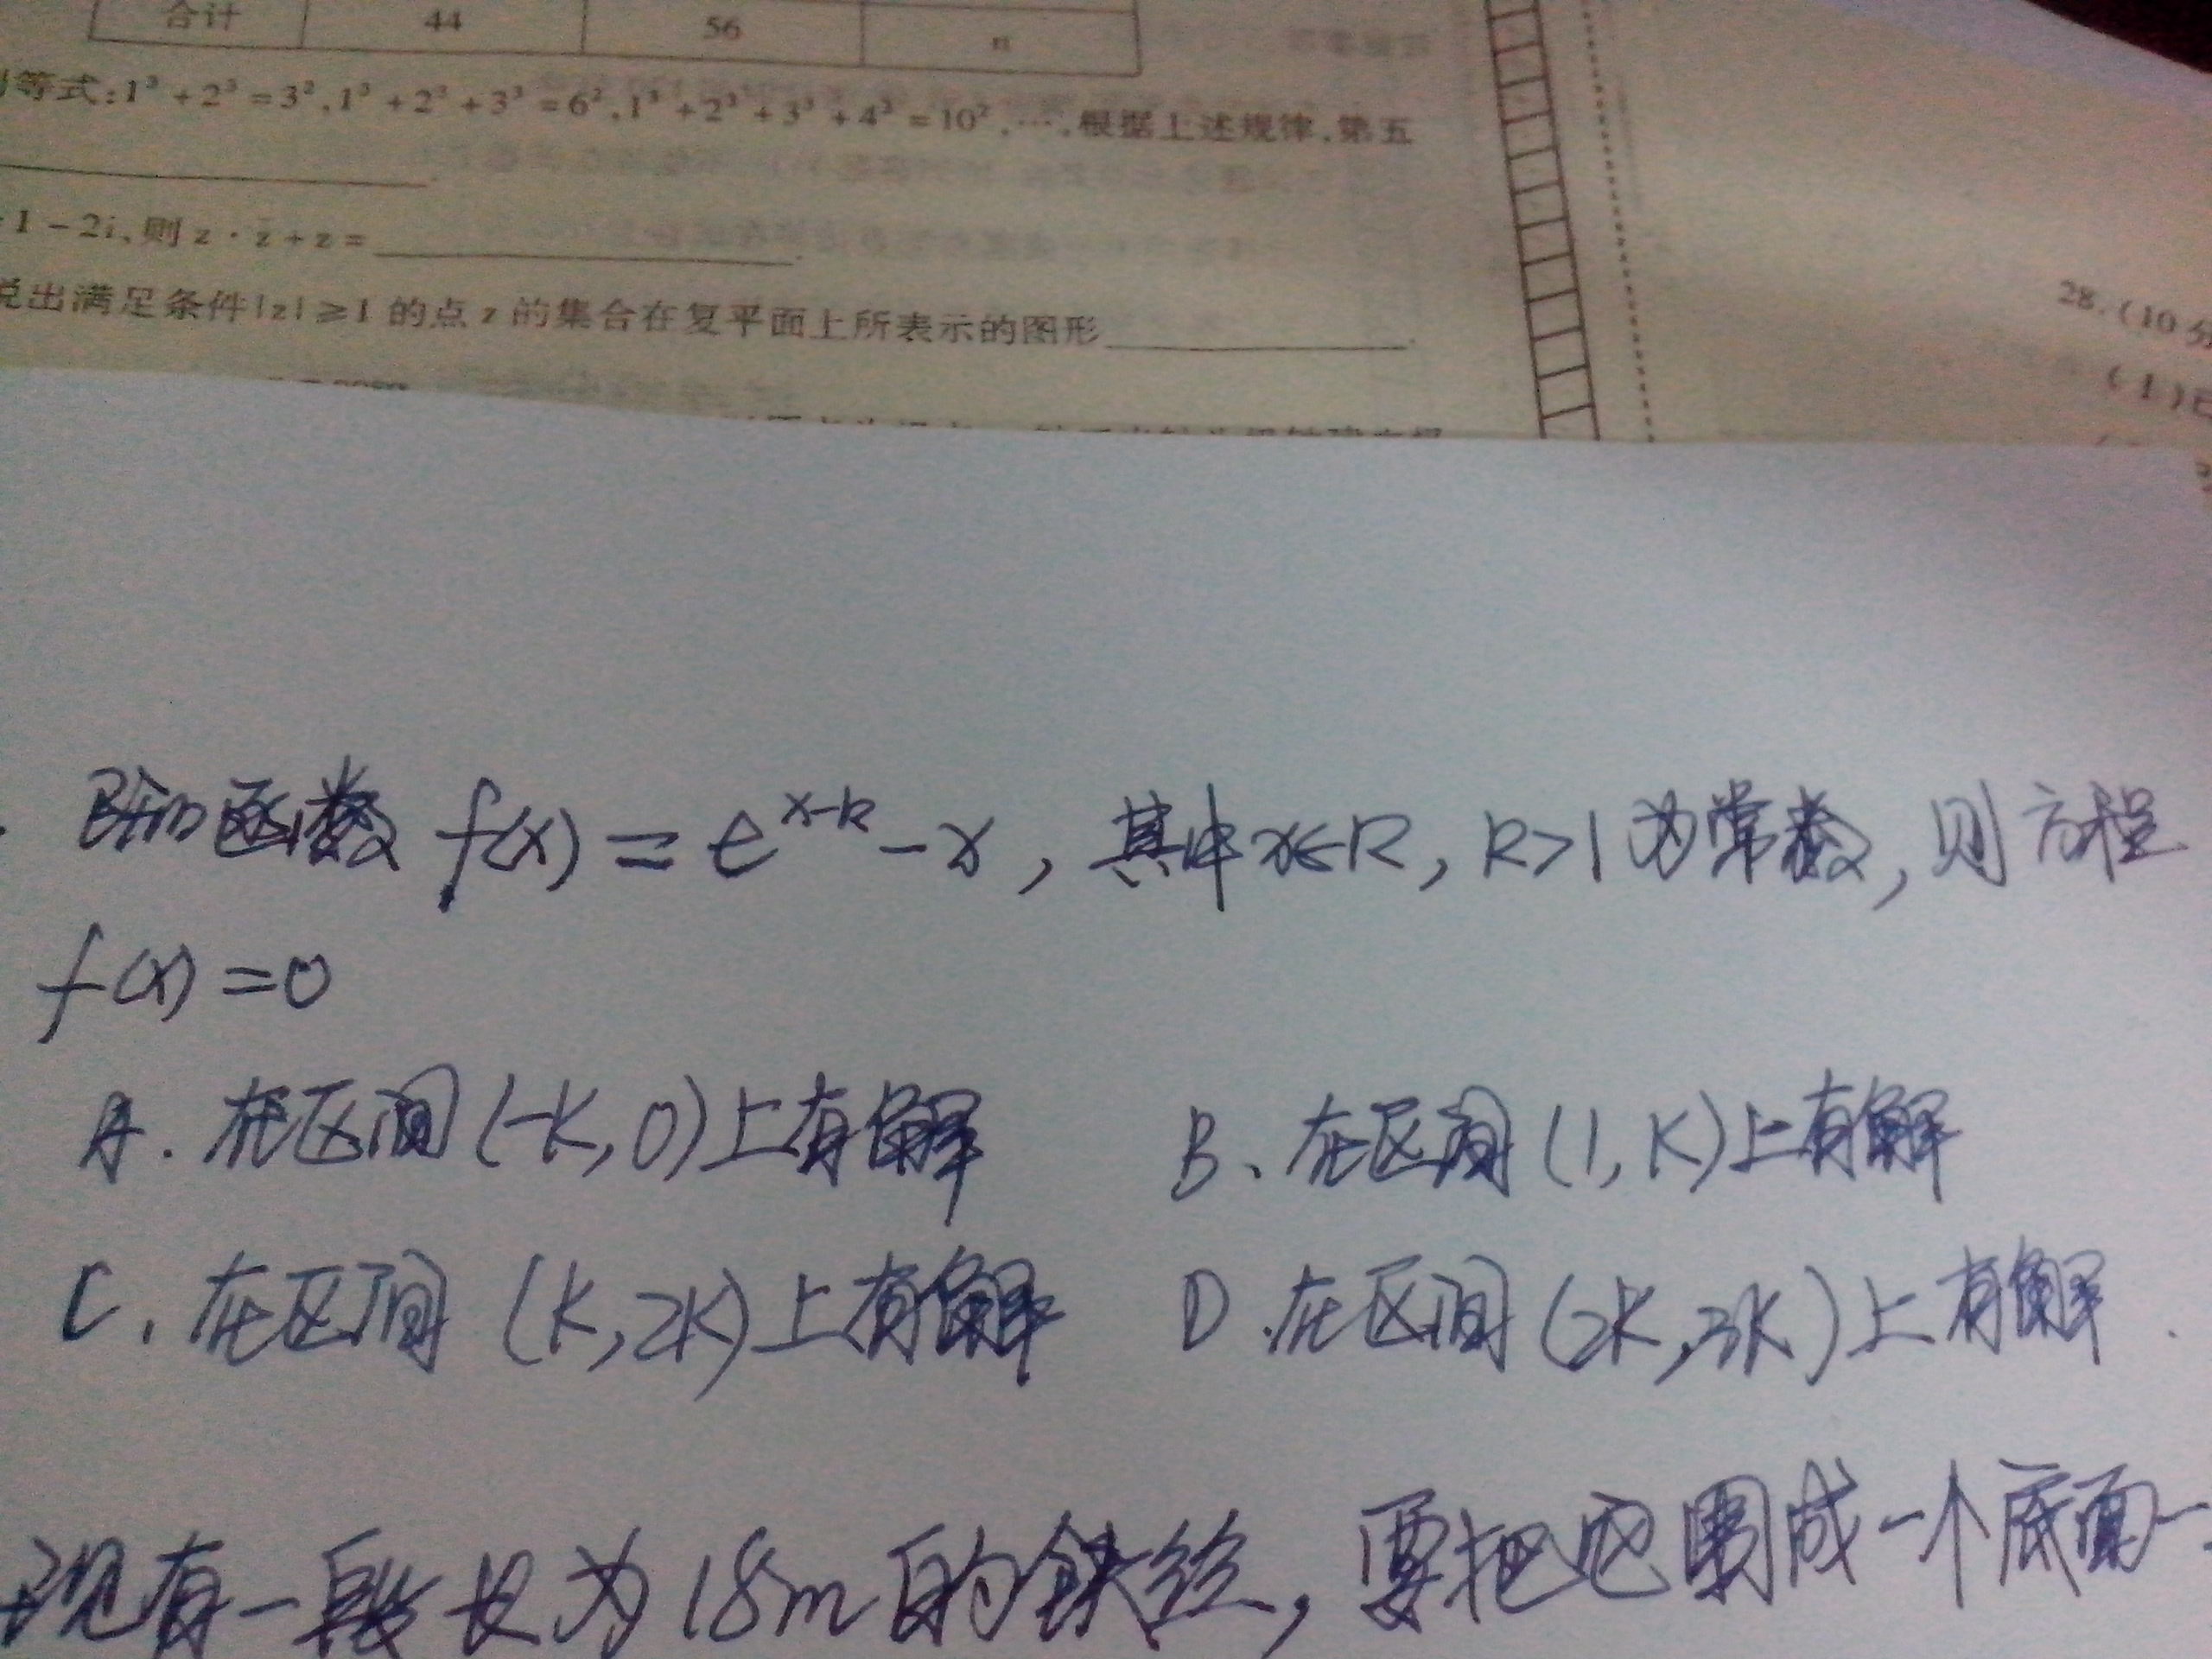 合计 44 56 n
等式:1³+2³=3²,1³+2³+3³=6²,1³+2³+3³+4³=10²,…,根据上述规律,第五
1-2i,则 z·z̄+z=
说出满足条件|z|≥1 的点 z 的集合在复平面上所表示的图形
28.(10分
(1)已
已知函数 f(x)=e^{x-k}-x,其中x∈R,k>1为常数,则方程
f(x)=0
A.在区间(-k,0)上有解 B、在区间(1,k)上有解
C.在区间(k,2k)上有解 D.在区间(2k,3k)上有解.
现有一段长为18m的铁丝,要把它围成一个底面一